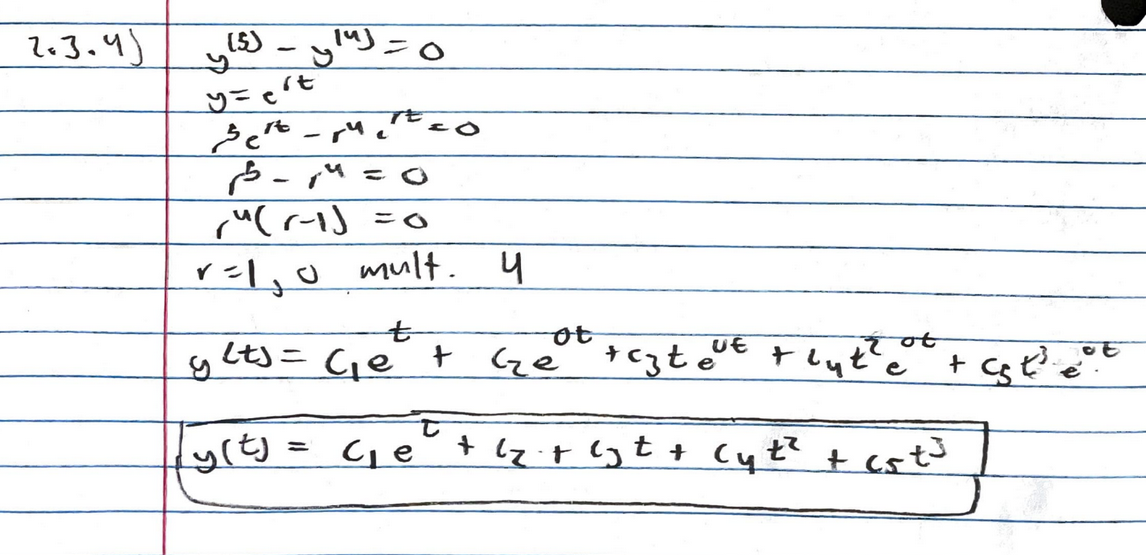 2.3.4) y^(5) - y^(4) = 0
y = e^rt
r^5 e^rt - r^4 e^rt = 0
r^5 - r^4 = 0
r^4(r-1) = 0
r = 1, 0 mult. 4
y(t) = c₁e^t + c₂e^0t + c₃te^0t + c₄t²e^0t + c₅t³e^0t
y(t) = c₁e^t + c₂ + c₃t + c₄t² + c₅t³